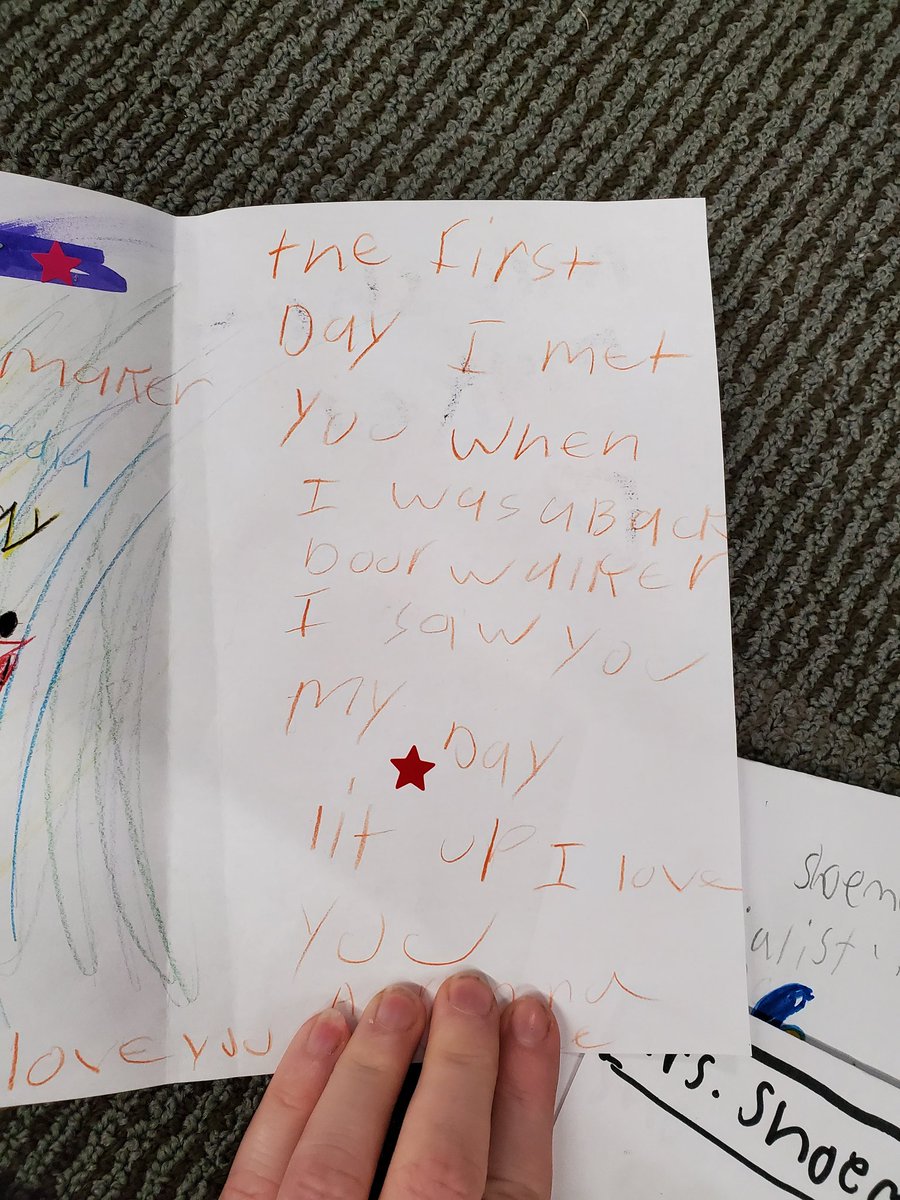 the first
Day I met
You when
I wasaBack
Door walker
I saw you
My Day
lit up I love
you
maker
love you
shoem
alist
rs. Shoem